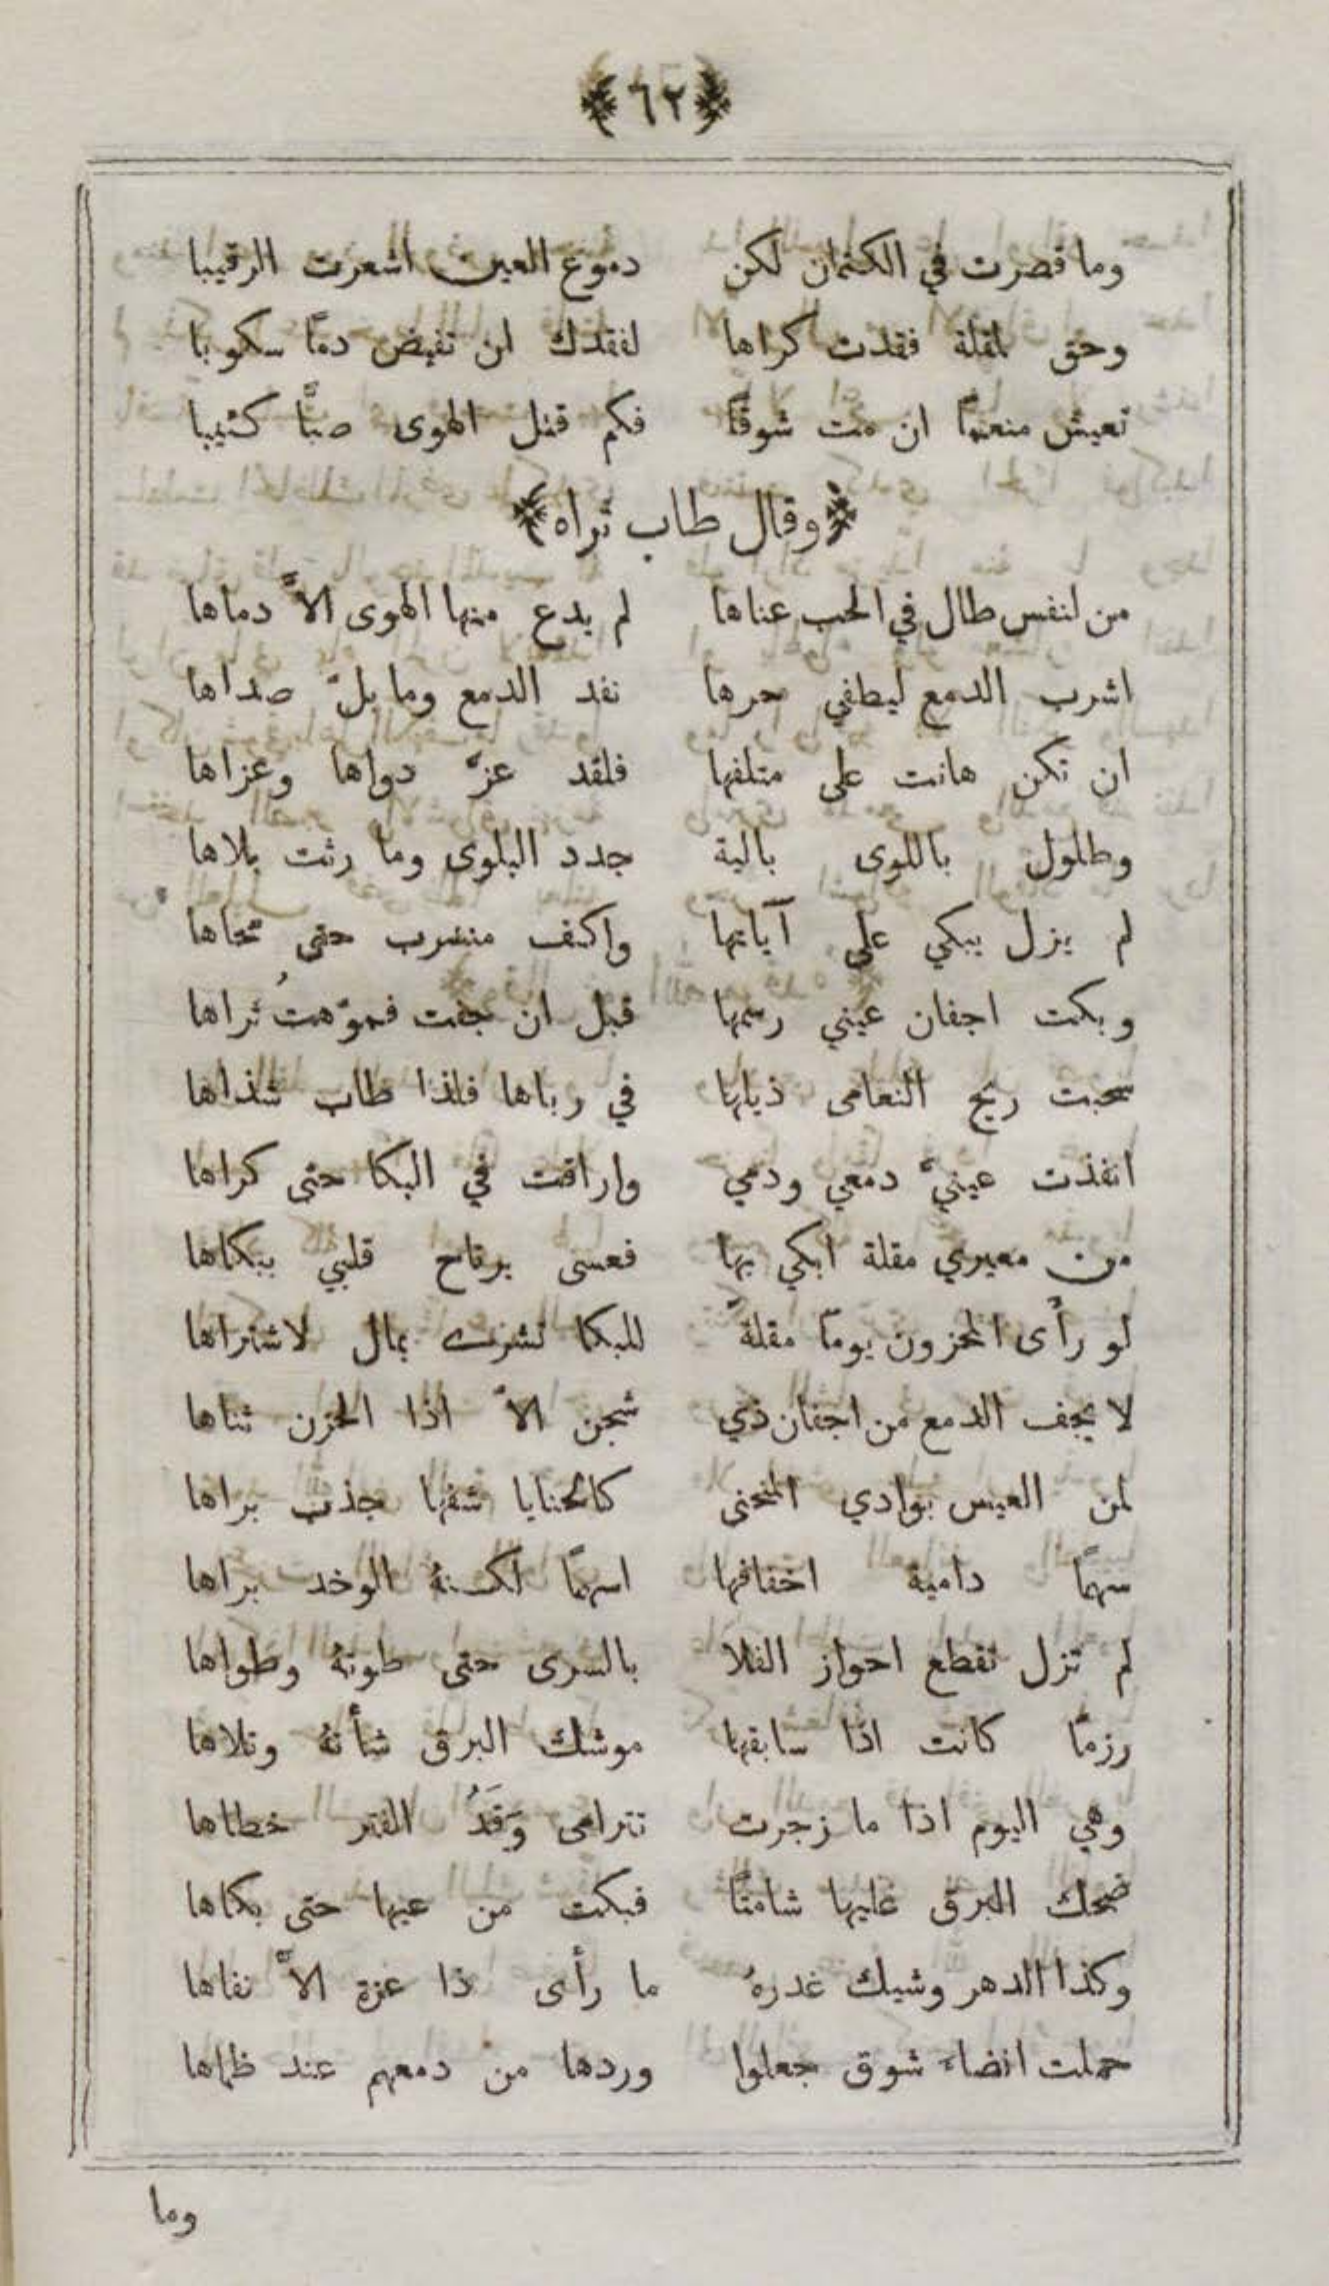 ﴿ ٦٢ ﴾
وما قصرت في الكتمان لكن دموع العين اشعرت الرقيبا
وحق لمقلة فقدت كراها لفقدك ان تفيض دمًا سكوبا
تعيش منعمًا ان مت شوقًا فكم قتل الهوى صبًّا كئيبا
﴿ وقال طاب ثراه ﴾
من لنفس طال في الحب عناها لم يدع منها الهوى الاَّ دماها
اشرب الدمع ليطفي حرها نفد الدمع وما بلّ صداها
ان تكن هانت على متلفها فلقد عزّ دواها وعزاها
وطلول باللوى بالية جدد البلوى وما رثت بلاها
لم يزل يبكي على آياتها واكف منسرب حتى محاها
وبكت اجفان عيني رسمها قبل ان جفت فموّهتُ ثراها
سحبت ريح النعامى ذيلها في رباها فلذا طاب شذاها
انفذت عينيّ دمعي ودمي واراقت في البكا حتى كراها
من معيري مقلة ابكي بها فعسى يرتاح قلبي ببكاها
لو رأى المحزون يومًا مقلةً للبكا تشرى بمال لاشتراها
لا يجف الدمع من اجفان ذي شجن الاّ اذا الحزن ثناها
لمن العيس بوادي المنحنى كالحنايا شفها جذب براها
سهمًا دامية اخفافها اسهمًا لكنهُ الوخد براها
لم تزل تقطع احواز الفلا بالسرى حتى طوتهُ وطواها
رزمًا كانت اذا سابقها موشك البرق شأتهُ وتلاها
وهي اليوم اذا ما زجرت تترامى وَقَدُ الفتر خطاها
ضحك البرق عليها شامتًا فبكت من عيها حتى بكاها
وكذا الدهر وشيك غدرهُ ما رأى ذا عزة الاَّ نفاها
حملت انضاء شوق جعلوا وردها من دمعهم عند ظماها
وما